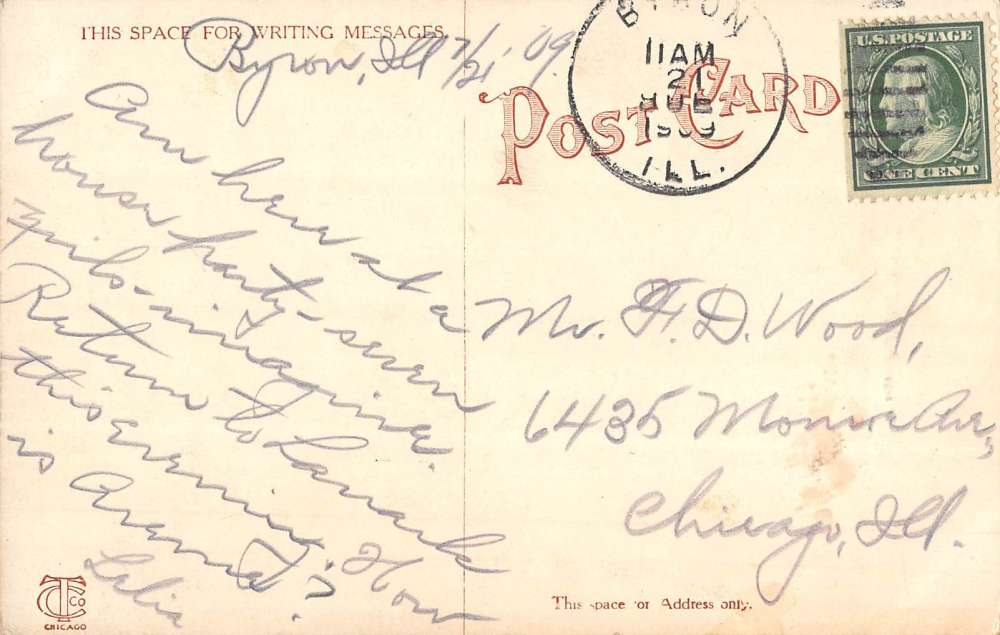 THIS SPACE FOR WRITING MESSAGES.
Byron, Ill 7/21 '09.
Am here at a
house party - seven
girls - imagine.
Return to Lanark
this evening. How
is Arema?
Lelia
POST CARD
BYRON
11 AM
21
1909
ILL.
U.S. POSTAGE
ONE CENT
Mr. F. D. Wood,
6435 Monroe Ave,
Chicago, Ill.
This space for Address only.
CTCo
CHICAGO